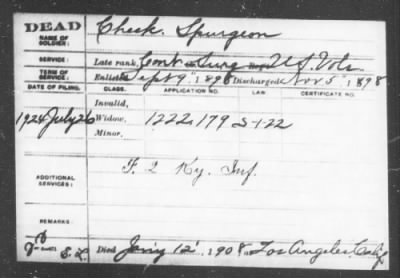 DEAD
NAME OF SOLDIER: Cheek, Spurgeon
SERVICE: Late rank, Cont. Surg U.S. Vols.
TERM OF SERVICE: Enlisted Sept 9", 1898 Discharged Nov 5", 1898
DATE OF FILING. CLASS. APPLICATION NO. LAW. CERTIFICATE NO.
Invalid,
1924 July 26 Widow, 1222,179 S-1-22
Minor,
ADDITIONAL SERVICES: F. 2 Ky. Inf.
REMARKS:
Died 12", 1908, at Los Angeles, Calif